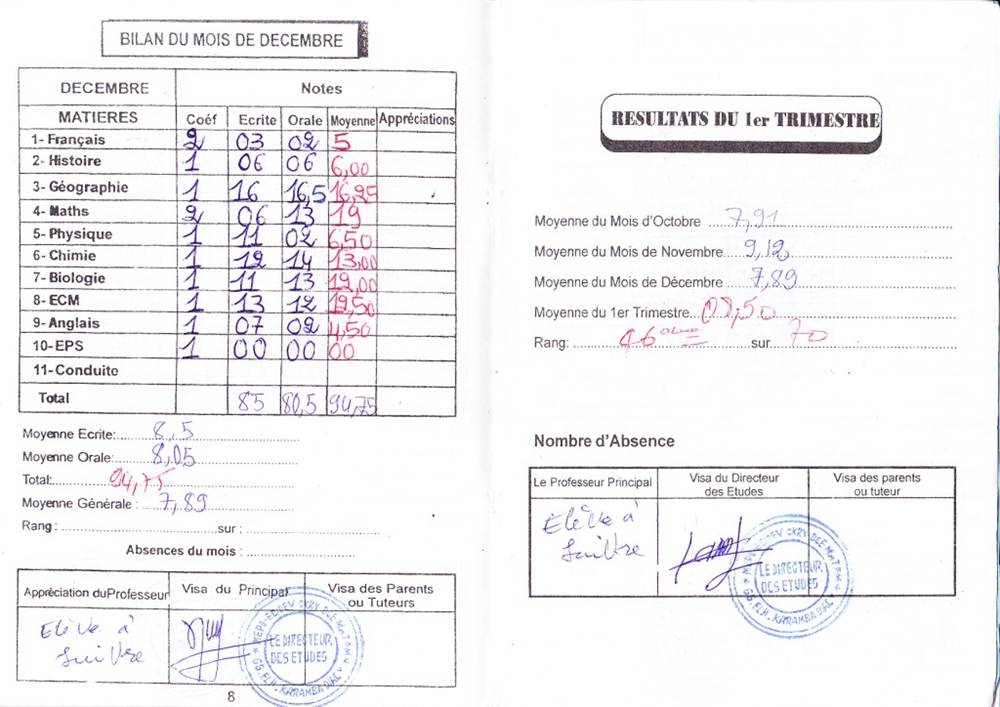 BILAN DU MOIS DE DECEMBRE
DECEMBRE Notes
MATIERES Coéf Ecrite Orale Moyenne Appréciations
1- Français 2 03 02 5
2- Histoire 1 06 06 6,00
3- Géographie 1 16 16,5 16,25
4- Maths 2 06 13 19
5- Physique 1 11 02 6,50
6- Chimie 1 12 14 13,00
7- Biologie 1 11 13 12,00
8- ECM 1 13 12 12,50
9- Anglais 1 07 02 4,50
10- EPS 1 00 00 00
11- Conduite
Total 85 80,5 94,75
Moyenne Ecrite: 8,5
Moyenne Orale: 8,05
Total: 94,75
Moyenne Générale : 7,89
Rang : sur :
Absences du mois :
Appréciation du Professeur Visa du Principal Visa des Parents ou Tuteurs
Elève à
suivre
LE DIRECTEUR
DES ETUDES
8
RESULTATS DU 1er TRIMESTRE
Moyenne du Mois d'Octobre 7,91
Moyenne du Mois de Novembre 9,12
Moyenne du Mois de Décembre 7,89
Moyenne du 1er Trimestre 08,50
Rang: 46ème sur 70
Nombre d'Absence
Le Professeur Principal Visa du Directeur des Etudes Visa des parents ou tuteur
Elève à
suivre
LE DIRECTEUR
DES ETUDES